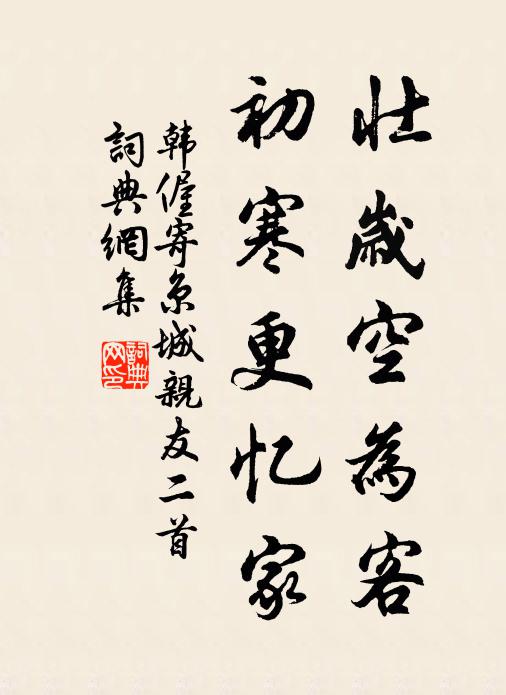 壮歳空為客
初寒更忆家
韩偓寄京城親友二首
詞典網集
詞典
网印